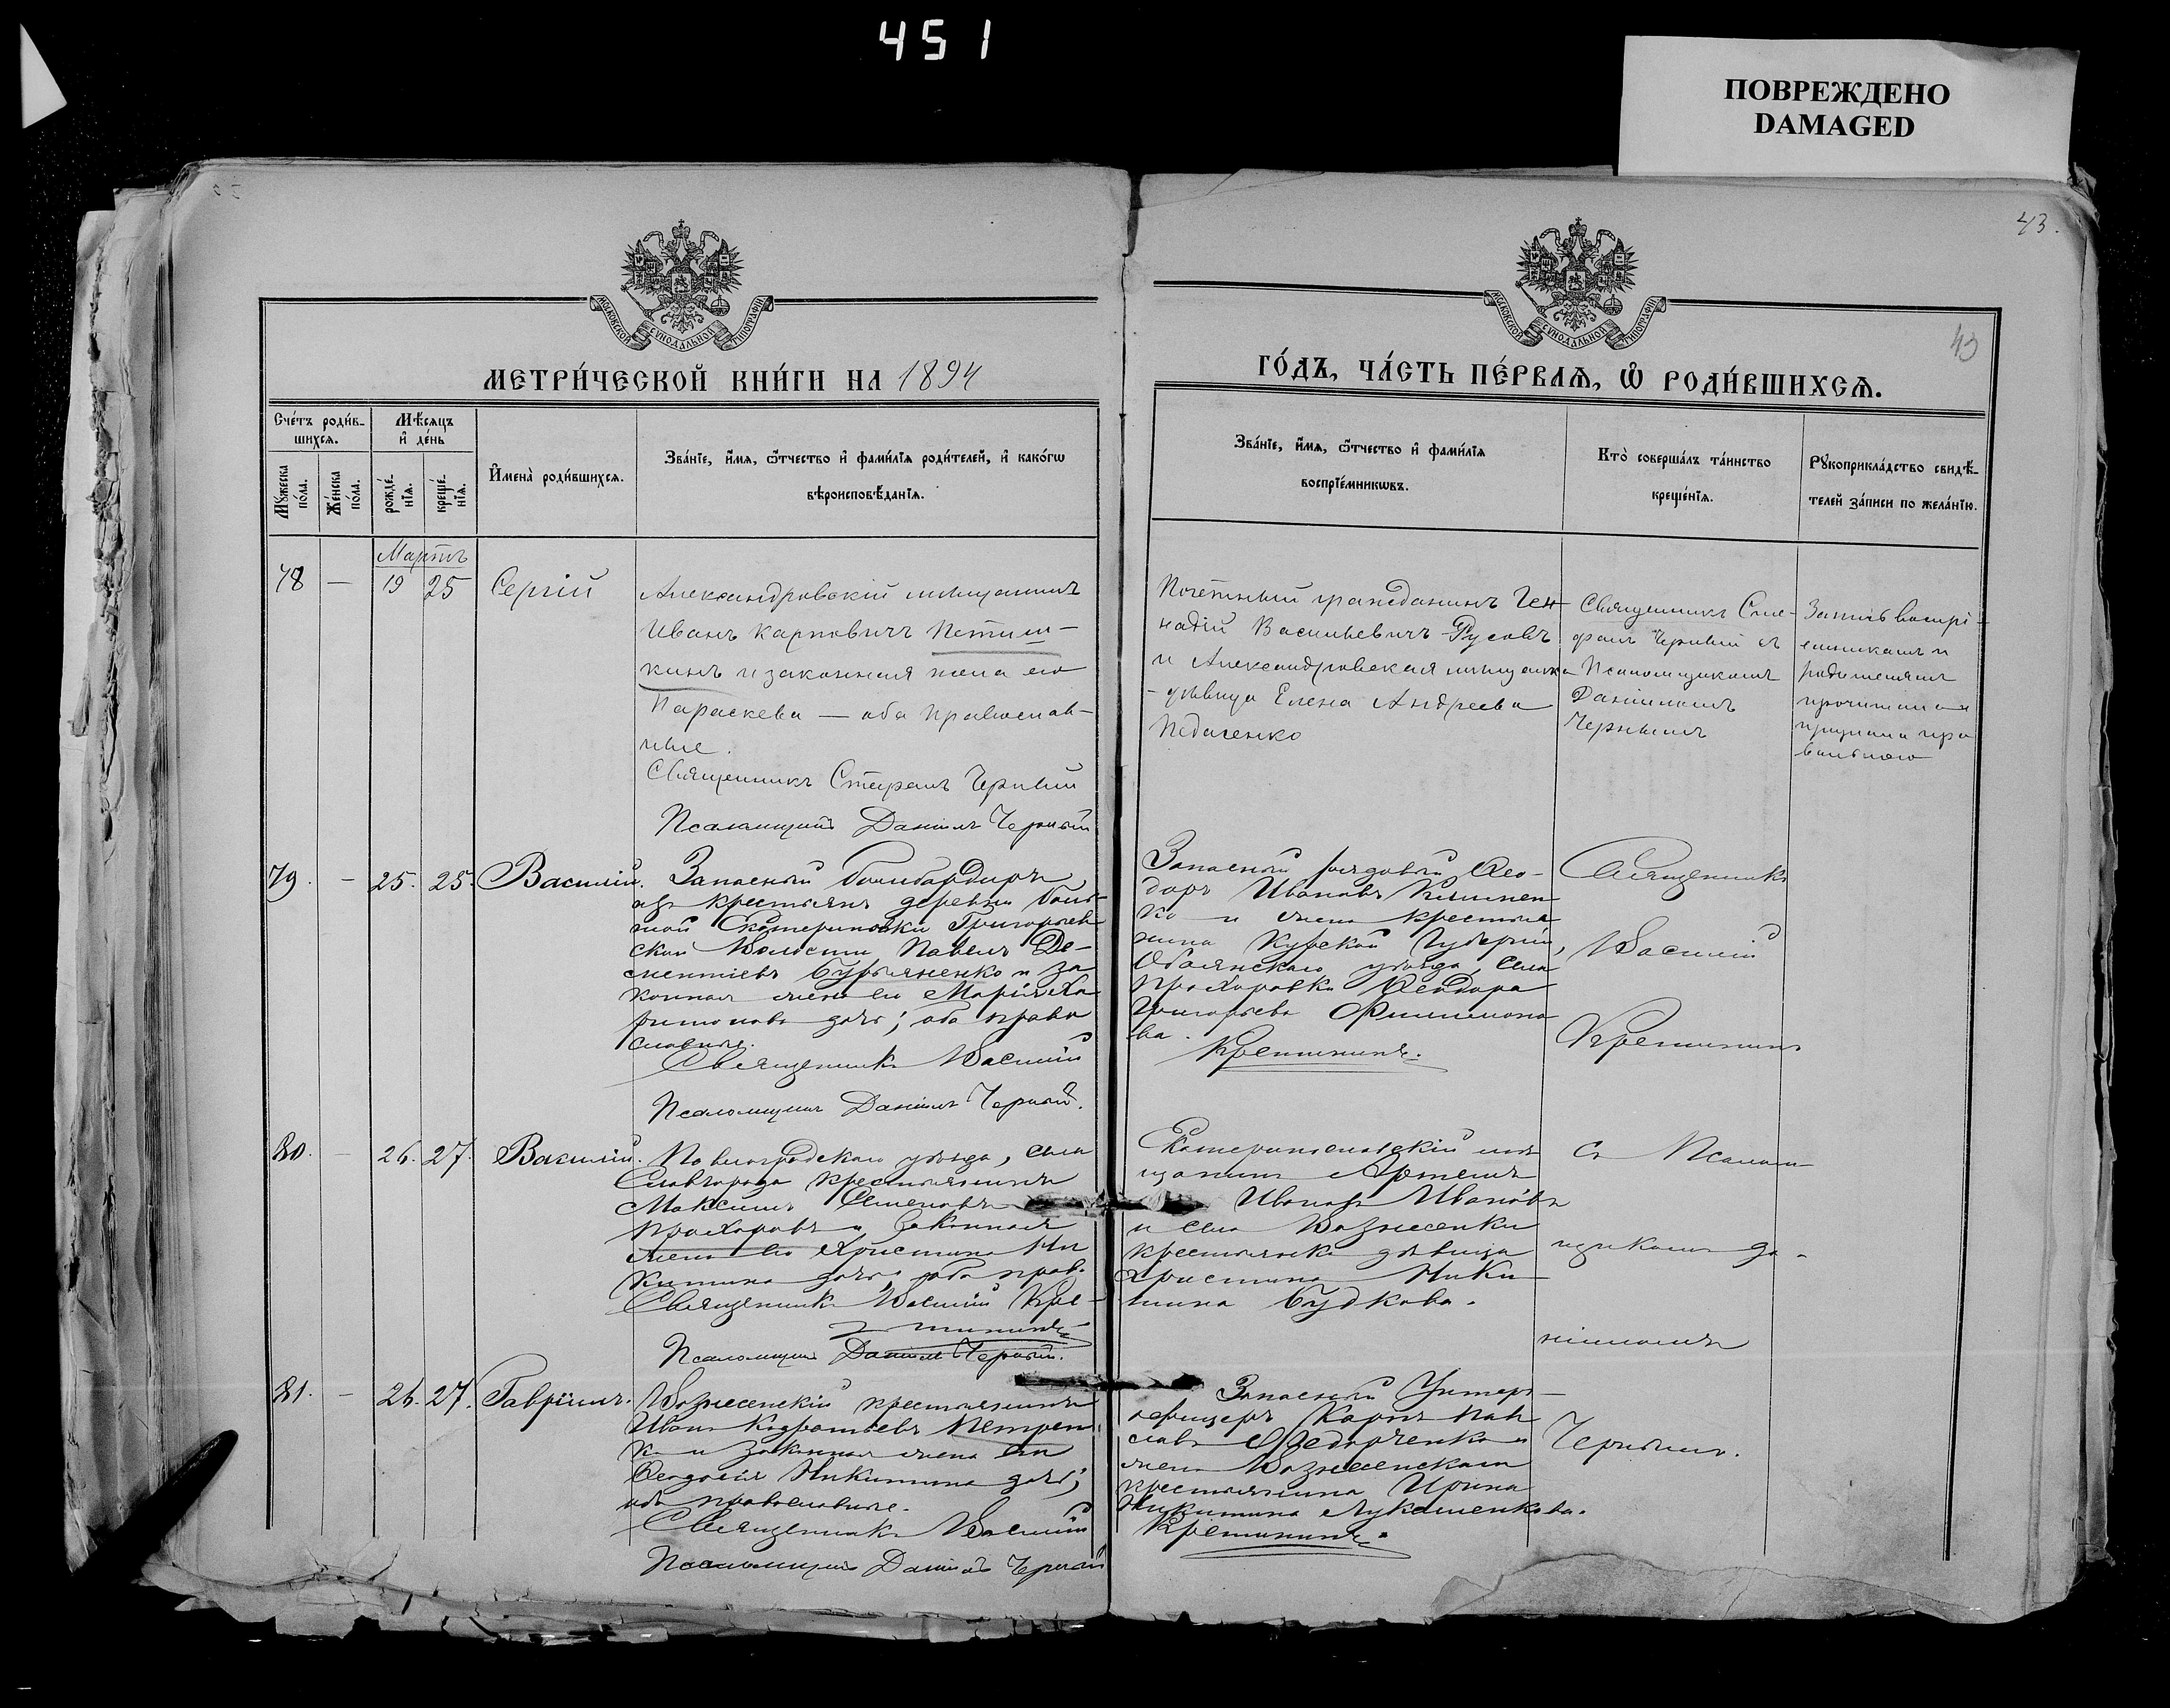 451
ПОВРЕЖДЕНО
DAMAGED
43.
43
МОСКОВСКОЙ СѴНОДАЛЬНОЙ ТИПОГРАФІИ
МОСКОВСКОЙ СѴНОДАЛЬНОЙ ТИПОГРАФІИ
МЕТРИ́ЧЕСКОЙ КНИ́ГИ НА 1894
ГО́ДЪ, ЧА́СТЬ ПЕ́РВАѦ, Ѡ҆ РОДИ́ВШИХСѦ.
Сче́тъ роди́в-
шихсѧ.
Мꙋ́жеска
по́ла.
Же́нска
по́ла.
Мѣ́сѧцъ
и҆ де́нь
рожде́-
нїѧ.
креще́-
нїѧ.
И҆мена̀ роди́вшихсѧ.
Зва́нїе, и҆́мѧ, ѻ҆́тчество и҆ фами́лїѧ роди́телей, и҆ како́гѡ
вѣроисповѣ́данїѧ.
Зва́нїе, и҆́мѧ, ѻ҆́тчество и҆ фами́лїѧ
воспрїе́мникѡвъ.
Кто̀ соверша́лъ та́инство
креще́нїѧ.
Рꙋкоприкла́дство свидѣ́-
телей за́писи по жела́нїю.
Мартъ
78 — 19 25 Сергій
Александровскій мѣщанинъ
Иванъ Карповичъ Петиш-
кинъ и законная жена его
Параскева — оба православ-
ные.
Священникъ Стефанъ Черный
Псаломщикъ Даніилъ Черный
Почетный гражданинъ Ген-
надій Васильевичъ Русовъ
и Александровская мѣщанка
- дѣвица Елена Андреева
Педаченко
Священникъ Сте-
фанъ Черный съ
Псаломщикомъ
Даніиломъ
Чернымъ
Запись воспрі-
емникамъ и
родителямъ
прочитана и
признана пра
вильною
79. — 25. 25. Василій.
Запасный бомбардиръ
изъ крестьянъ деревни боль-
шой Екатериновки Григорьев-
ской Волости Павелъ Де-
ментіевъ Бурьяненко и за
конная жена его Марія Ха
ритонова дочь; оба право
славные.
Священникъ Василій
Псаломщикъ Даніилъ Черный.
Запасный рядовой Ѳео-
доръ Ивановъ Клименко
ко и жена крестья
нина Курской Губерніи,
Обоянскаго уѣзда, села
Прохоровки Ѳеодора
Григорьева Филимоно
ва.
Крешининъ.
Священникъ
Василій
Крешининъ
80. — 26. 27. Василій.
Павлоградскаго уѣзда, села
Славгорода крестьянинъ
Максимъ Семеновъ
Прохоровъ и законная
жена его Христина Ни
китина дочь, оба прав.
Священникъ Василій Кре-
шининъ
Псаломщикъ Даніилъ Черный.
Екатеринославскій мѣ
щанинъ Артемъ
Ивановъ Ивановъ
и села Вознесенки
крестьянка дѣвица
Христина Ники-
тина Будкова.
съ Псалом-
щикомъ Да-
ніиломъ
81. — 26. 27. Гавріилъ.
Вознесенскій крестьянинъ
Иванъ Кодратьевъ Петрен
ко и законная жена его
Ѳеодосія Никитина дочь;
оба православные.
Священникъ Василій
Псаломщикъ Даніилъ Черный
Запасный Унтеръ-
офицеръ Карпъ
Федорченко и
жена Вознесенскаго
крестьянина Ирина
Никитина Лукашенкова.
Крешининъ.
Чернымъ.